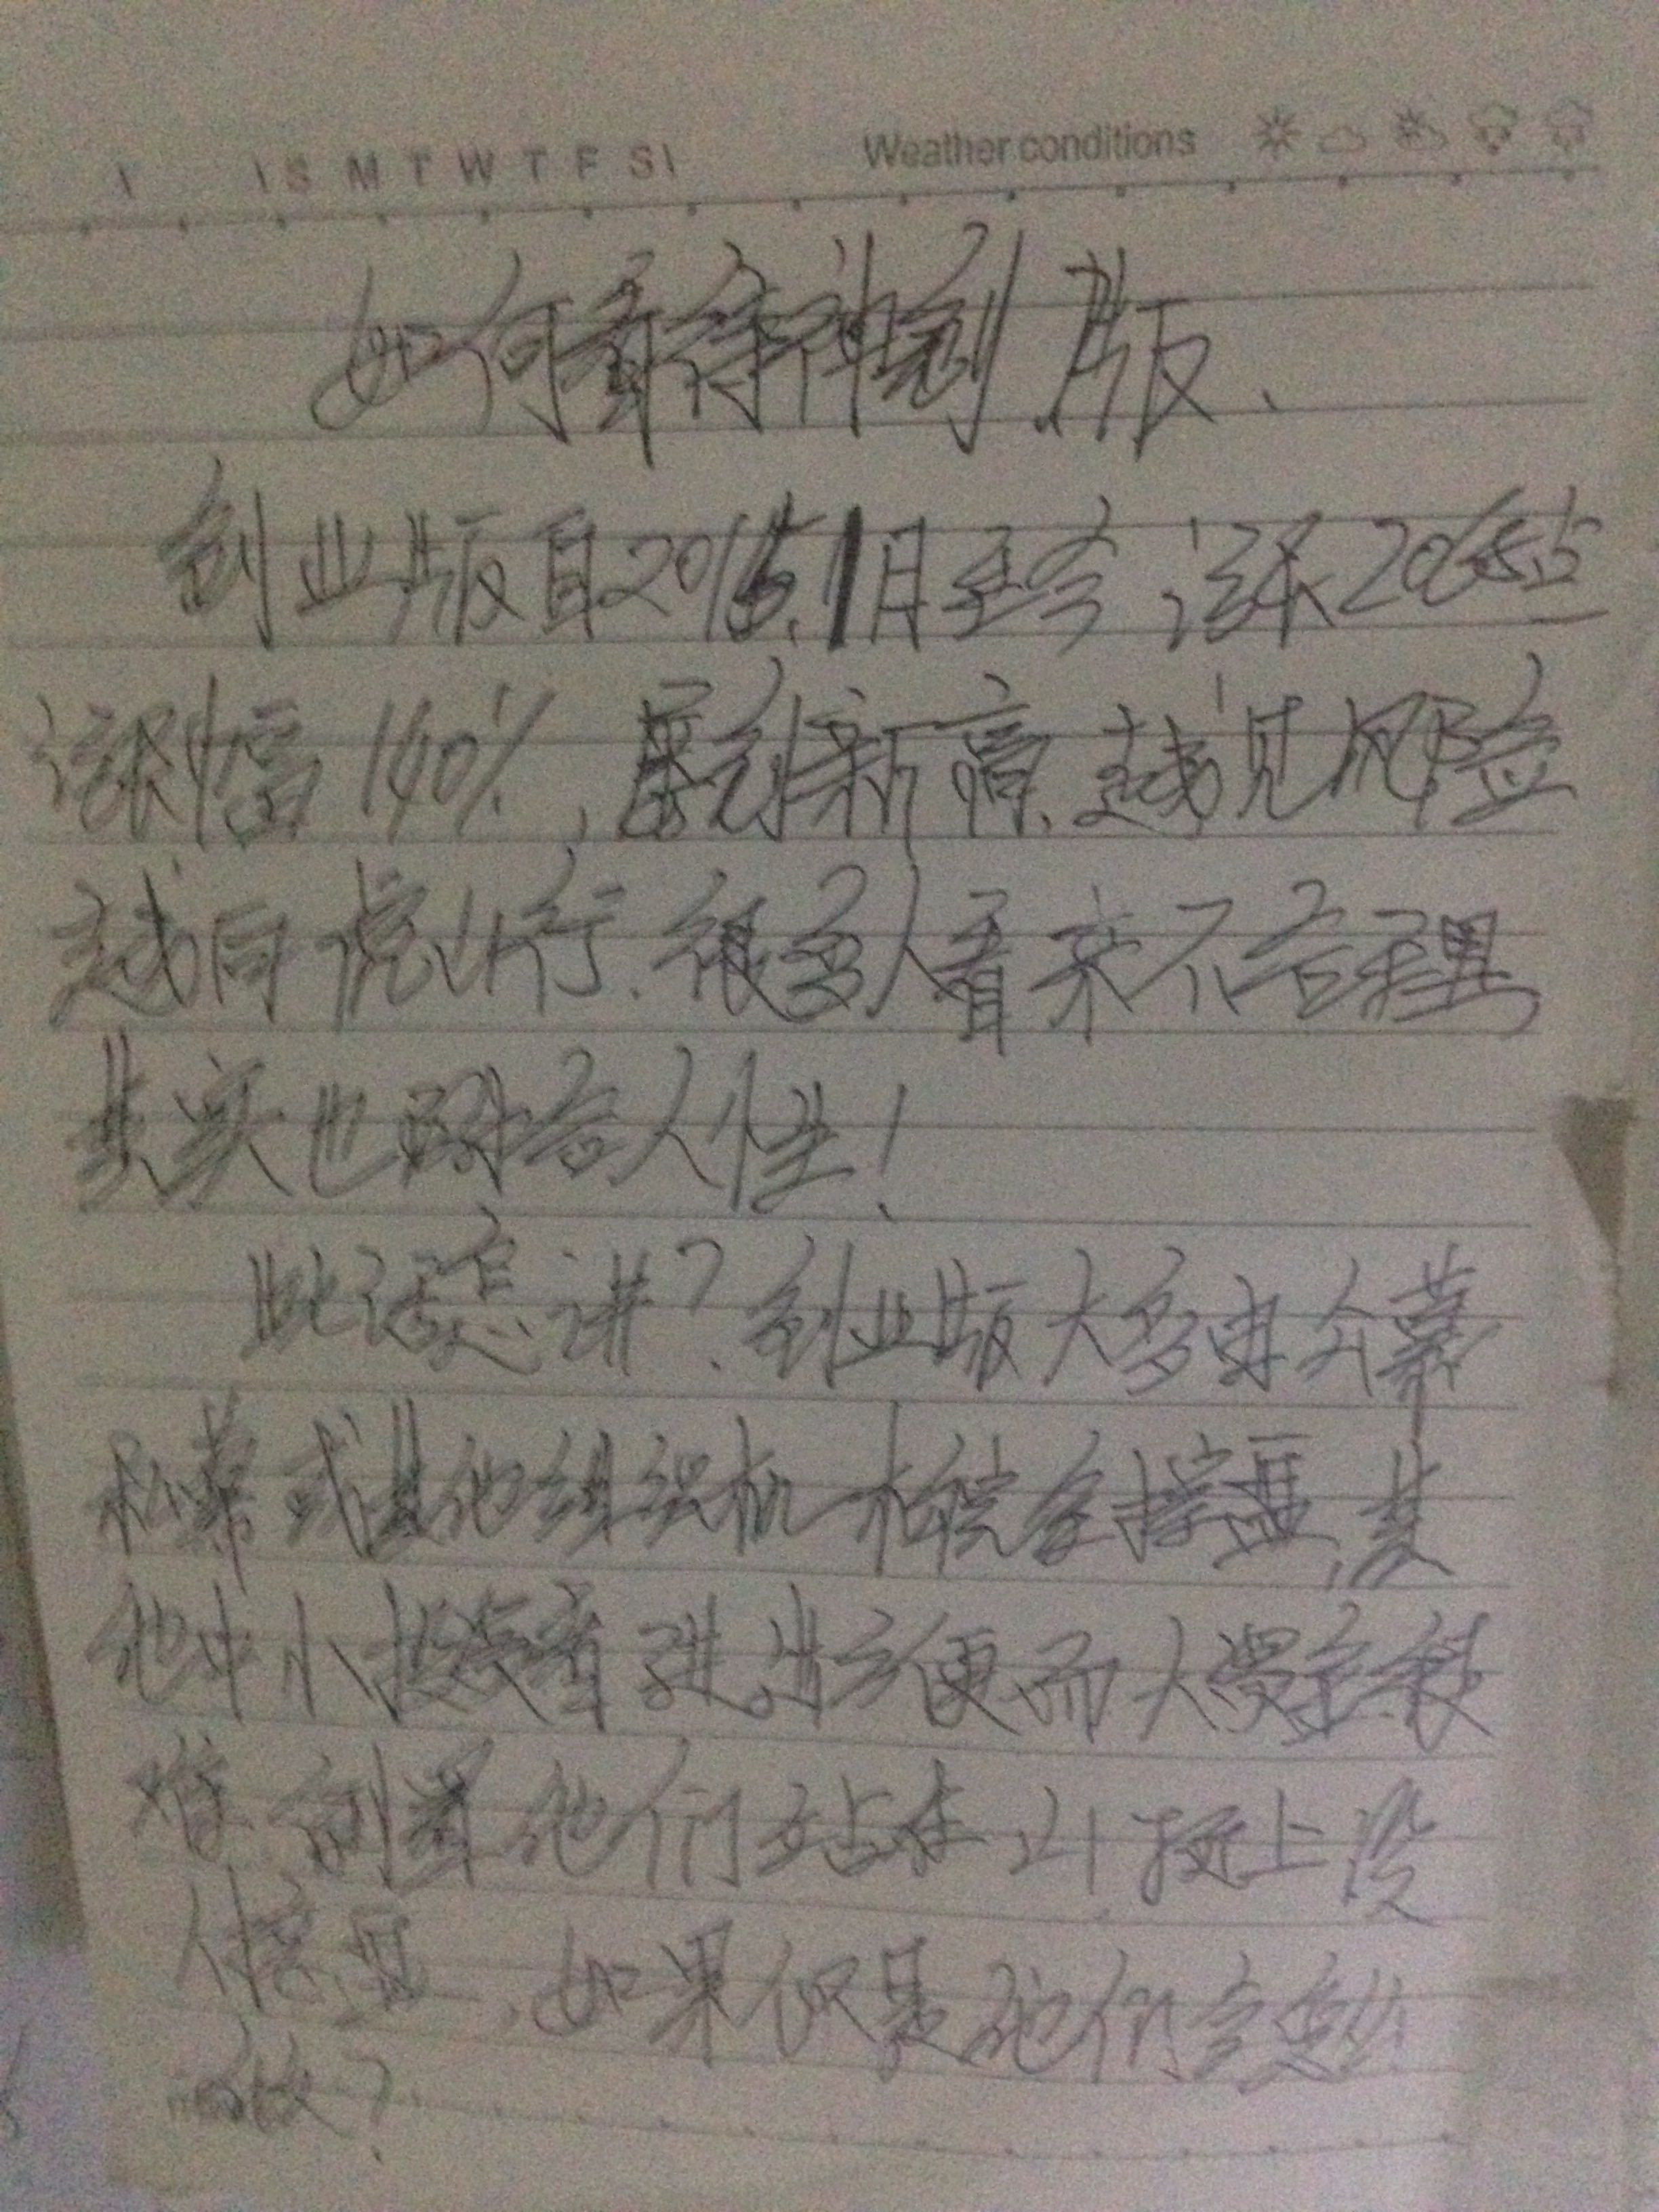 \ \ S M T W T F S \ Weather conditions
如何看待神创版、
创业版自2015.1月至今,涨2065点
涨幅140%,屡创新高、越见风险
越向虎山行.很多人看来不合理
其实也符合人性!
此话怎讲?创业版大多由公募
私募或其他组织机构完全掌噩,其
他中小投资者进出方便而大资金很
难 他们站在山顶上没
什意思,如果仅是他们会怎么
做?